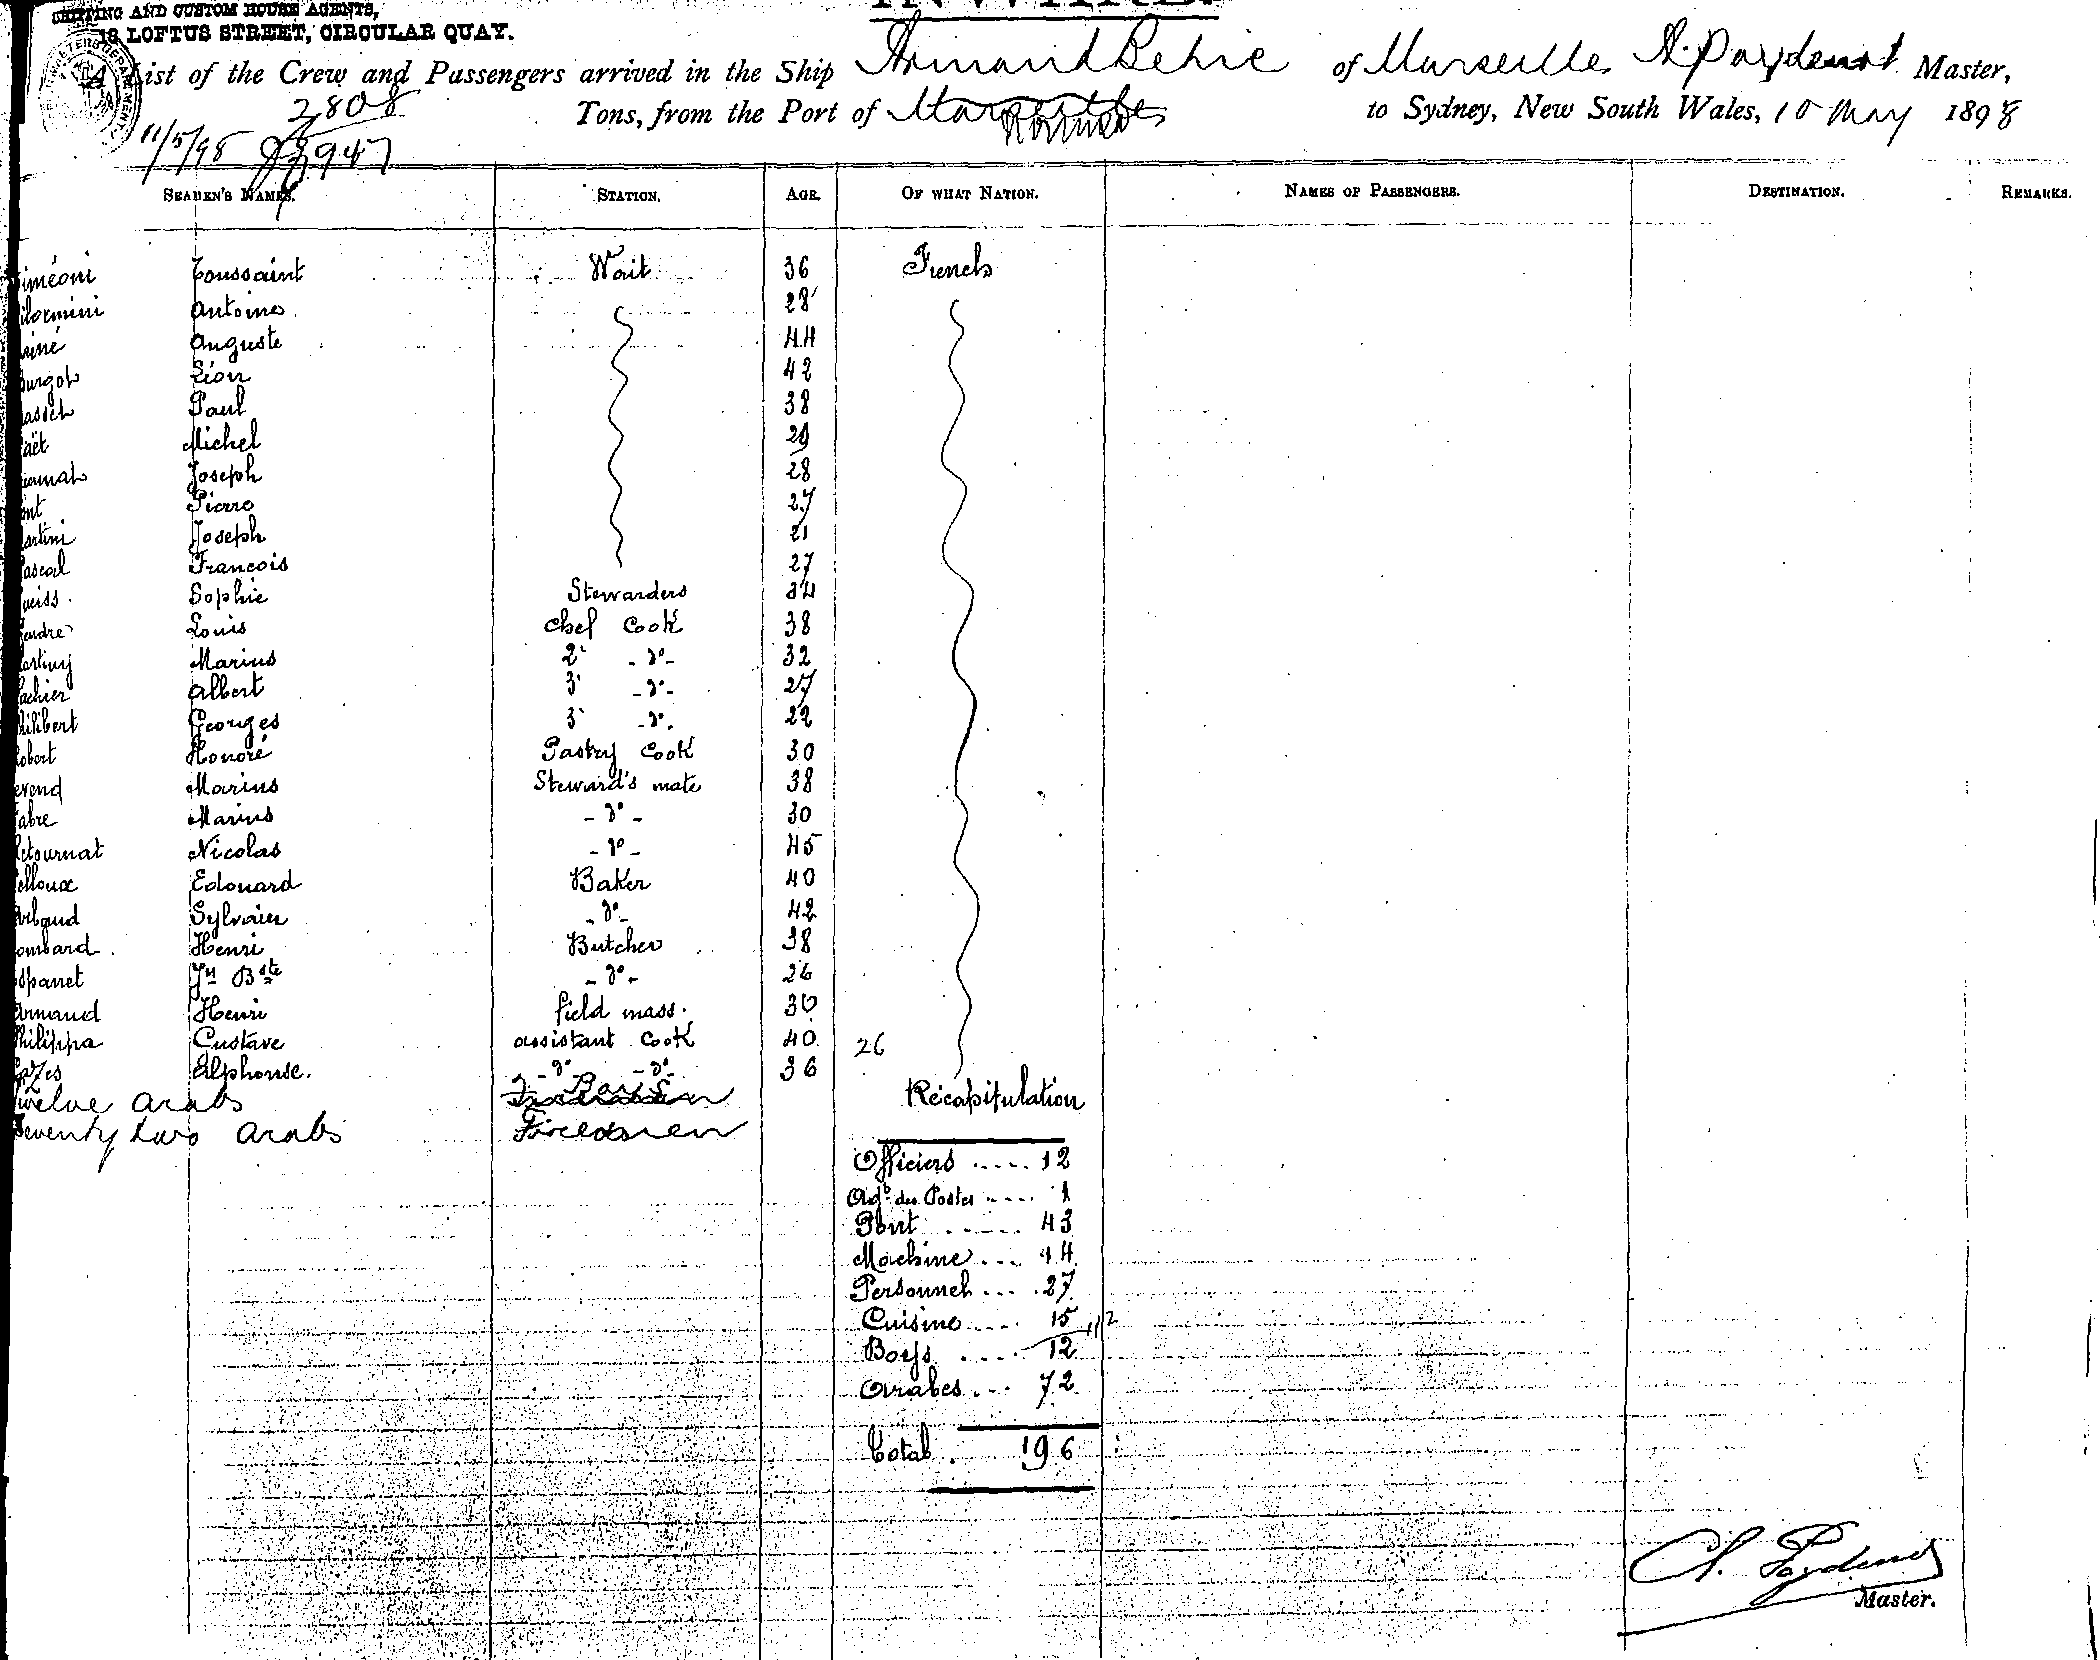 SHIPPING AND CUSTOM HOUSE AGENTS,
18 LOFTUS STREET, CIRCULAR QUAY.
A List of the Crew and Passengers arrived in the Ship Armand Behic of Marseille A. Paydenot Master,
2,808 Tons, from the Port of to Sydney, New South Wales, 10 May 1898
11/5/98 947
SEAMEN'S NAMES. STATION. AGE. OF WHAT NATION. NAMES OF PASSENGERS. DESTINATION. REMARKS.
iméoni Toussaint Wait 36 French
ilormini Antoine 28
ainé Auguste 44
ourgot Léon 42
assel Paul 38
aët Michel 29
Joseph 28
nt Pierre 27
artini Joseph 21
ascal Francois 27
eiss. Sophie Stewarders 34
endre Louis Chef Cook 38
artiny Marius 2e - do - 32
achier Albert 3e - do - 27
hilibert Georges 3e - do. 22
obert Honoré Pastry Cook 30
erend Marius Steward's mate 38
abre Marius - do - 30
etournat Nicolas - do - 45
elloux Edouard Baker 40
rbaud Sylvain - do - 42
ombard. Henri Butcher 38
spanet Jn Bste - do - 26
rmand Henri field mass. 30
hilippa Gustave assistant Cook 40 26
azes Alphonse. - do - - do - 36
Twelve Arabs Boys Récapitulation
Seventy two Arabs Firemen
Officiers ..... 12
Agt des Postes .... 1
Pont ...... 43
Machine .... 14
Personnel .... 27
Cuisine .... 15 112
Boys .... 12
Arabes ... 72
Total . 196
A. Paydenot
Master.